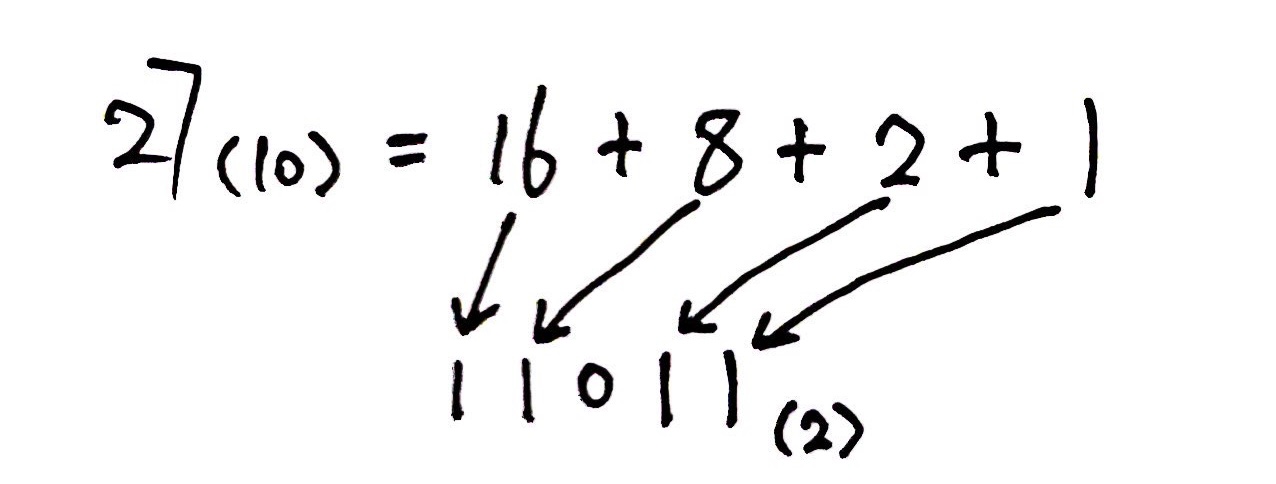 27(10) = 16 + 8 + 2 + 1
11011(2)